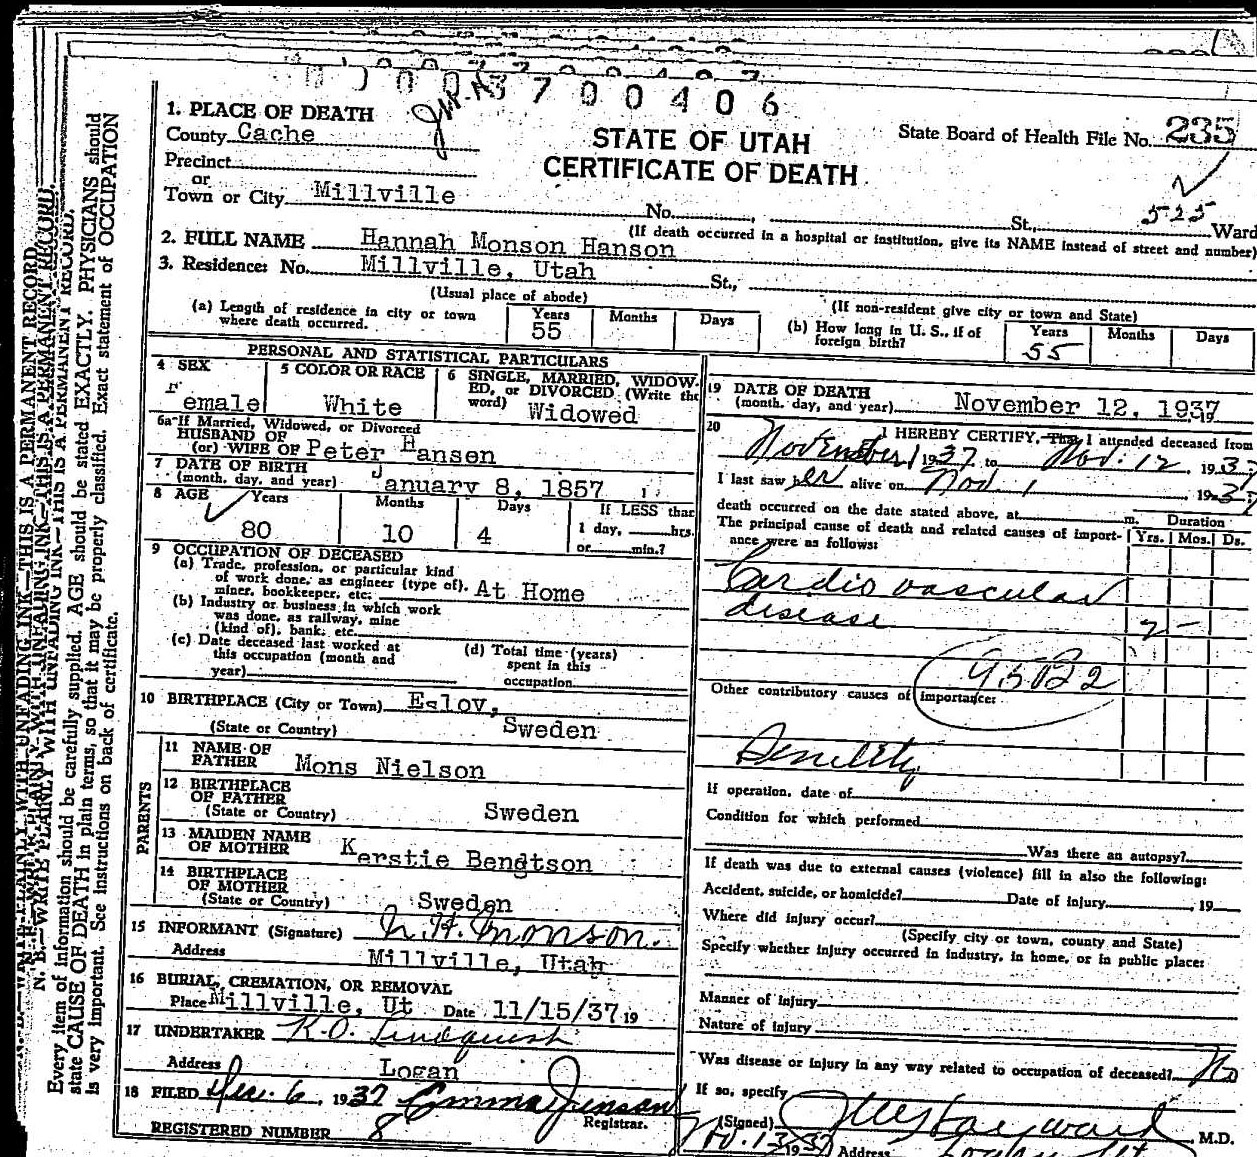 3700406
1. PLACE OF DEATH
County Cache
STATE OF UTAH
CERTIFICATE OF DEATH
State Board of Health File No. 235
Precinct
or
Town or City Millville
No. , St., 525 Ward
(If death occurred in a hospital or institution, give its NAME instead of street and number)
2. FULL NAME Hannah Monson Hanson
3. Residence: No. Millville, Utah St.,
(Usual place of abode)
(If non-resident give city or town and State)
(a) Length of residence in city or town where death occurred. Years 55 Months Days
(b) How long in U. S., if of foreign birth? Years 55 Months Days
PERSONAL AND STATISTICAL PARTICULARS
4 SEX Female
5 COLOR OR RACE White
6 SINGLE, MARRIED, WIDOWED, or DIVORCED (Write the word) Widowed
6a If Married, Widowed, or Divorced
HUSBAND OF
(or) WIFE OF Peter Hansen
7 DATE OF BIRTH
(month, day, and year) January 8, 1857
8 AGE Years 80 Months 10 Days 4
If LESS than
1 day, hrs.
or min.?
9 OCCUPATION OF DECEASED
(a) Trade, profession, or particular kind
of work done, as engineer (type of),
miner, bookkeeper, etc. At Home
(b) Industry or business in which work
was done, as railway, mine
(kind of), bank, etc.
(c) Date deceased last worked at
this occupation (month and
year)
(d) Total time (years)
spent in this
occupation
10 BIRTHPLACE (City or Town) Eslov,
(State or Country) Sweden
PARENTS
11 NAME OF
FATHER Mons Nielson
12 BIRTHPLACE
OF FATHER
(State or Country) Sweden
13 MAIDEN NAME
OF MOTHER Kerstie Bengtson
14 BIRTHPLACE
OF MOTHER
(State or Country) Sweden
15 INFORMANT (Signature) N. H. Monson.
Address Millville, Utah
16 BURIAL, CREMATION, OR REMOVAL
Place Millville, Ut Date 11/15/37 19
17 UNDERTAKER K. O. Lindquist
Address Logan
18 FILED Dec. 6, 1937 Emma Jenson
Registrar.
REGISTERED NUMBER 8
19 DATE OF DEATH
(month, day, and year) November 12, 1937
20 I HEREBY CERTIFY, That I attended deceased from
November 1 1937 to Nov. 12, 1937
I last saw her alive on Nov. 1, 1937
death occurred on the date stated above, at m.
Duration
The principal cause of death and related causes of importance were as follows: Yrs. Mos. Ds.
Cardio vascular
disease
95B2
Other contributory causes of importance:
Senility
If operation, date of
Condition for which performed
Was there an autopsy?
If death was due to external causes (violence) fill in also the following:
Accident, suicide, or homicide? Date of injury , 19
Where did injury occur?
(Specify city or town, county and State)
Specify whether injury occurred in industry, in home, or in public place:
Manner of injury
Nature of injury
Was disease or injury in any way related to occupation of deceased? No
If so, specify
(Signed) Hayward M.D.
Nov. 13 1937 Address Logan Ut
N. B.—WRITE PLAINLY WITH UNFADING INK—THIS IS A PERMANENT RECORD.
Every item of information should be carefully supplied. AGE should be stated EXACTLY. PHYSICIANS should
state CAUSE OF DEATH in plain terms, so that it may be properly classified. Exact statement of OCCUPATION
is very important. See instructions on back of certificate.